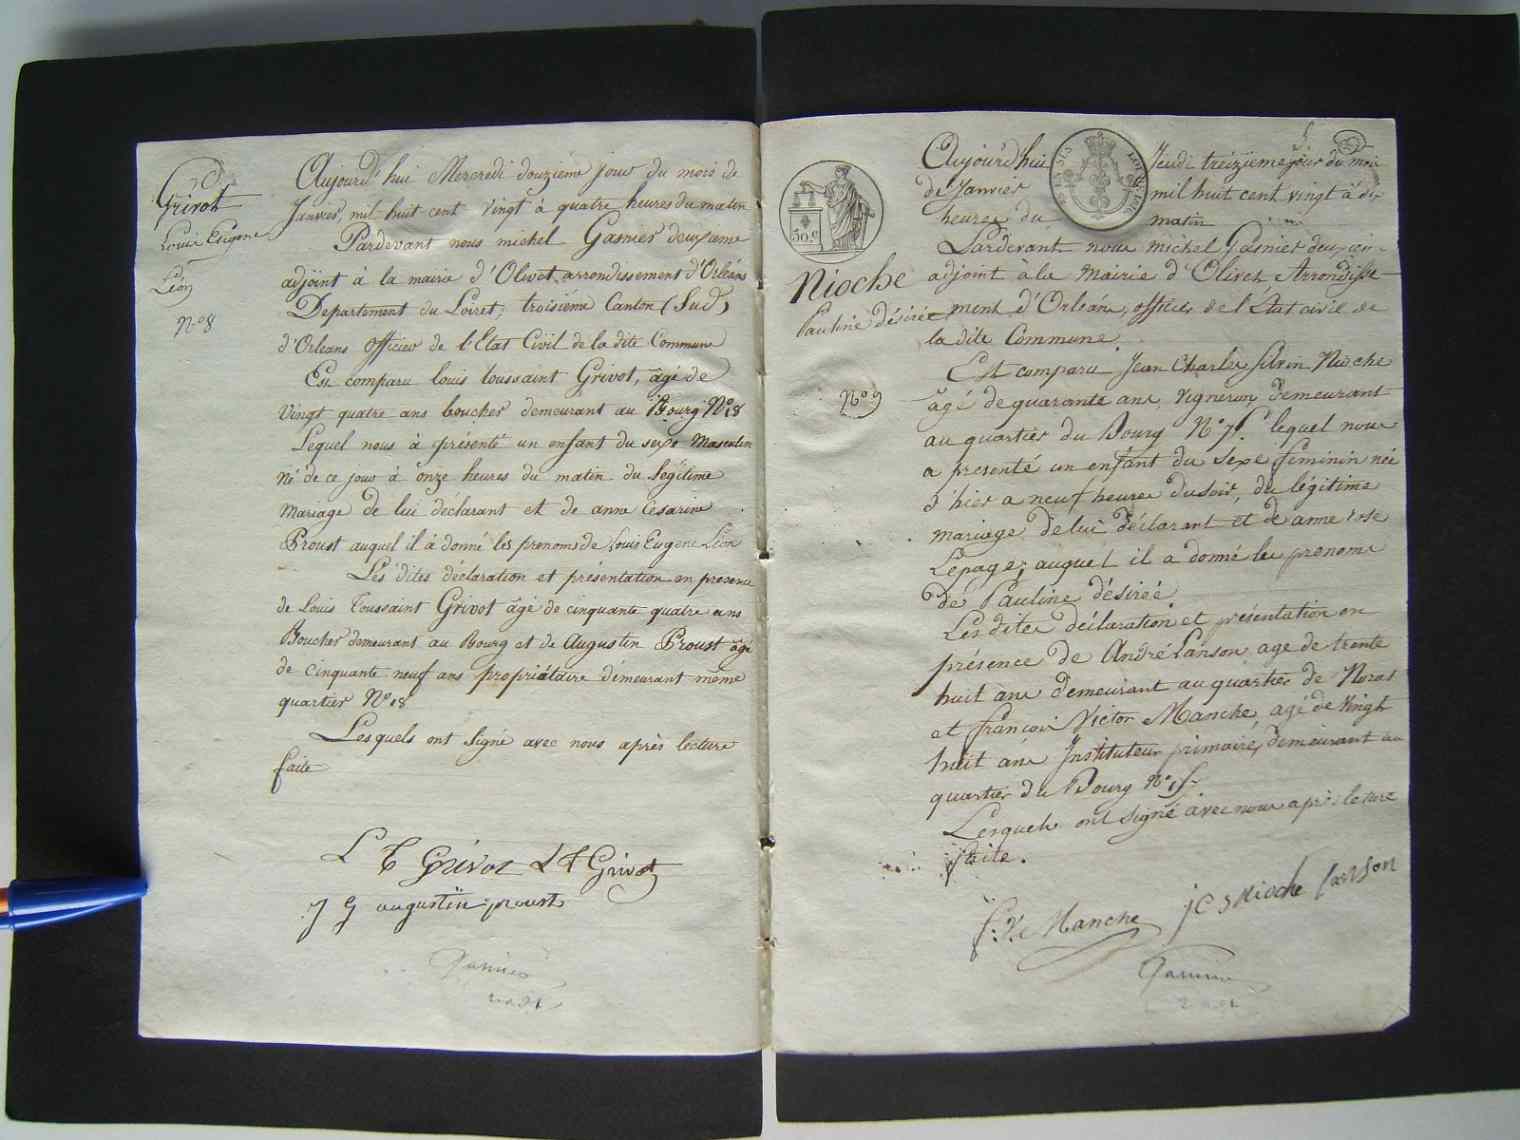 Grivot
Louis Eugene
Léon
N° 8
Aujourd'hui Mercredi douzieme jour du mois de
Janvier, mil huit cent vingt à quatre heures du matin
Pardevant nous michel Gasnier deuxieme
adjoint à la mairie d'Olivet, arrondissement d'Orléans
Departement du Loiret, troisiéme Canton (Sud)
d'Orleans officier de l'Etat Civil de la dite Commune
Est comparu louis toussaint Grivot, âgé de
vingt quatre ans boucher demeurant au Bourg N° 18
Lequel nous à présenté un enfant du sexe Masculin
né de ce jour à onze heures du matin du légitime
Mariage de lui déclarant et de anne Cesarine
Proust auquel il à donné les prenoms de Louis Eugene Léon
Les dites déclaration et présentation en presence
de Louis Toussaint Grivot âgé de cinquante quatre ans
Boucher demeurant au Bourg et de Augustin Proust âgé
de Cinquante neuf ans propriétaire démeurant même
quartier N° 18
Lesquels ont signé avec nous après lecture
faite
L T Grivot L T Grivot
J G augustin proust
Gasnier
50.c
Nioche
Pauline désirée
N° 9
Aujourd'hui Jeudi treizieme jour du mois
de Janvier mil huit cent vingt à
heures du matin
Pardevant nous michel Gasnier
adjoint à la Mairie d'Olivet Arrondisse
ment d'Orléans, officier de l'État civil de
la dite Commune
Est comparu Jean Charles Silvin Nioche
âgé de quarante ans, Vigneron demeurant
au quartier du Bourg lequel nous
a presenté un enfant du sexe féminin née
d'hier a neuf heures du soir, du légitime
mariage de lui déclarant et de anne rose
Lepage, auquel il a donné les prenoms
de Pauline désirée
Les dites déclaration et présentation en
présence de André Lanson age de trente
huit ans demeurant au quartier de
et françois Victor Manche, agé de vingt
huit ans Instituteur primaire, demeurant au
quartier du Bourg
Lesquels ont signé avec nous après lecture
faite.
f. V. Manche j C S Nioche lanson
Gasnier